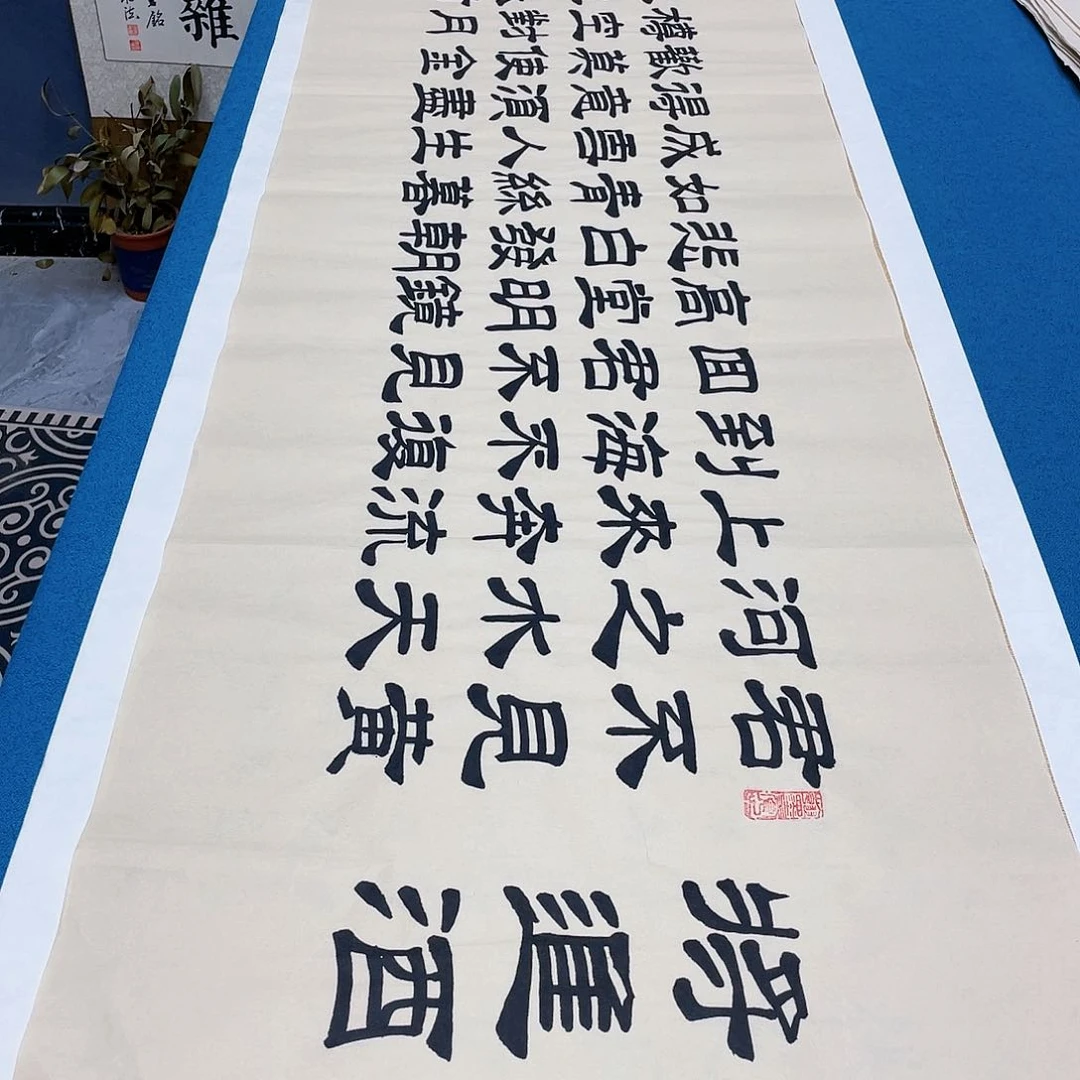 將進酒
君不見黃
河之水天
上來奔流
到海不復
回君不見
高堂明鏡
悲白髮朝
如青絲暮
成雪人生
得意須盡
歡莫使金
樽空對月
雜
銘